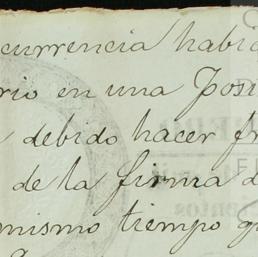 currencia habi
rio en una Posi
debido hacer fr
de la firma d
mismo tiempo q